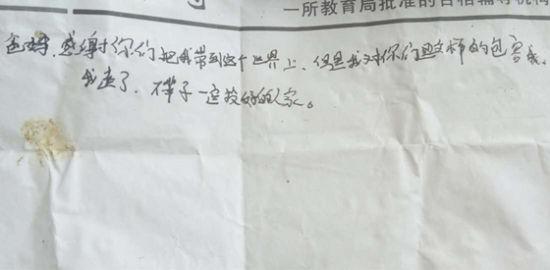 一所教育局批准的合格辅导机构
爸妈,感谢你们把我带到这个世界上,但是我对你们这样的包容我,
我走了,下辈子一定投好的人家。